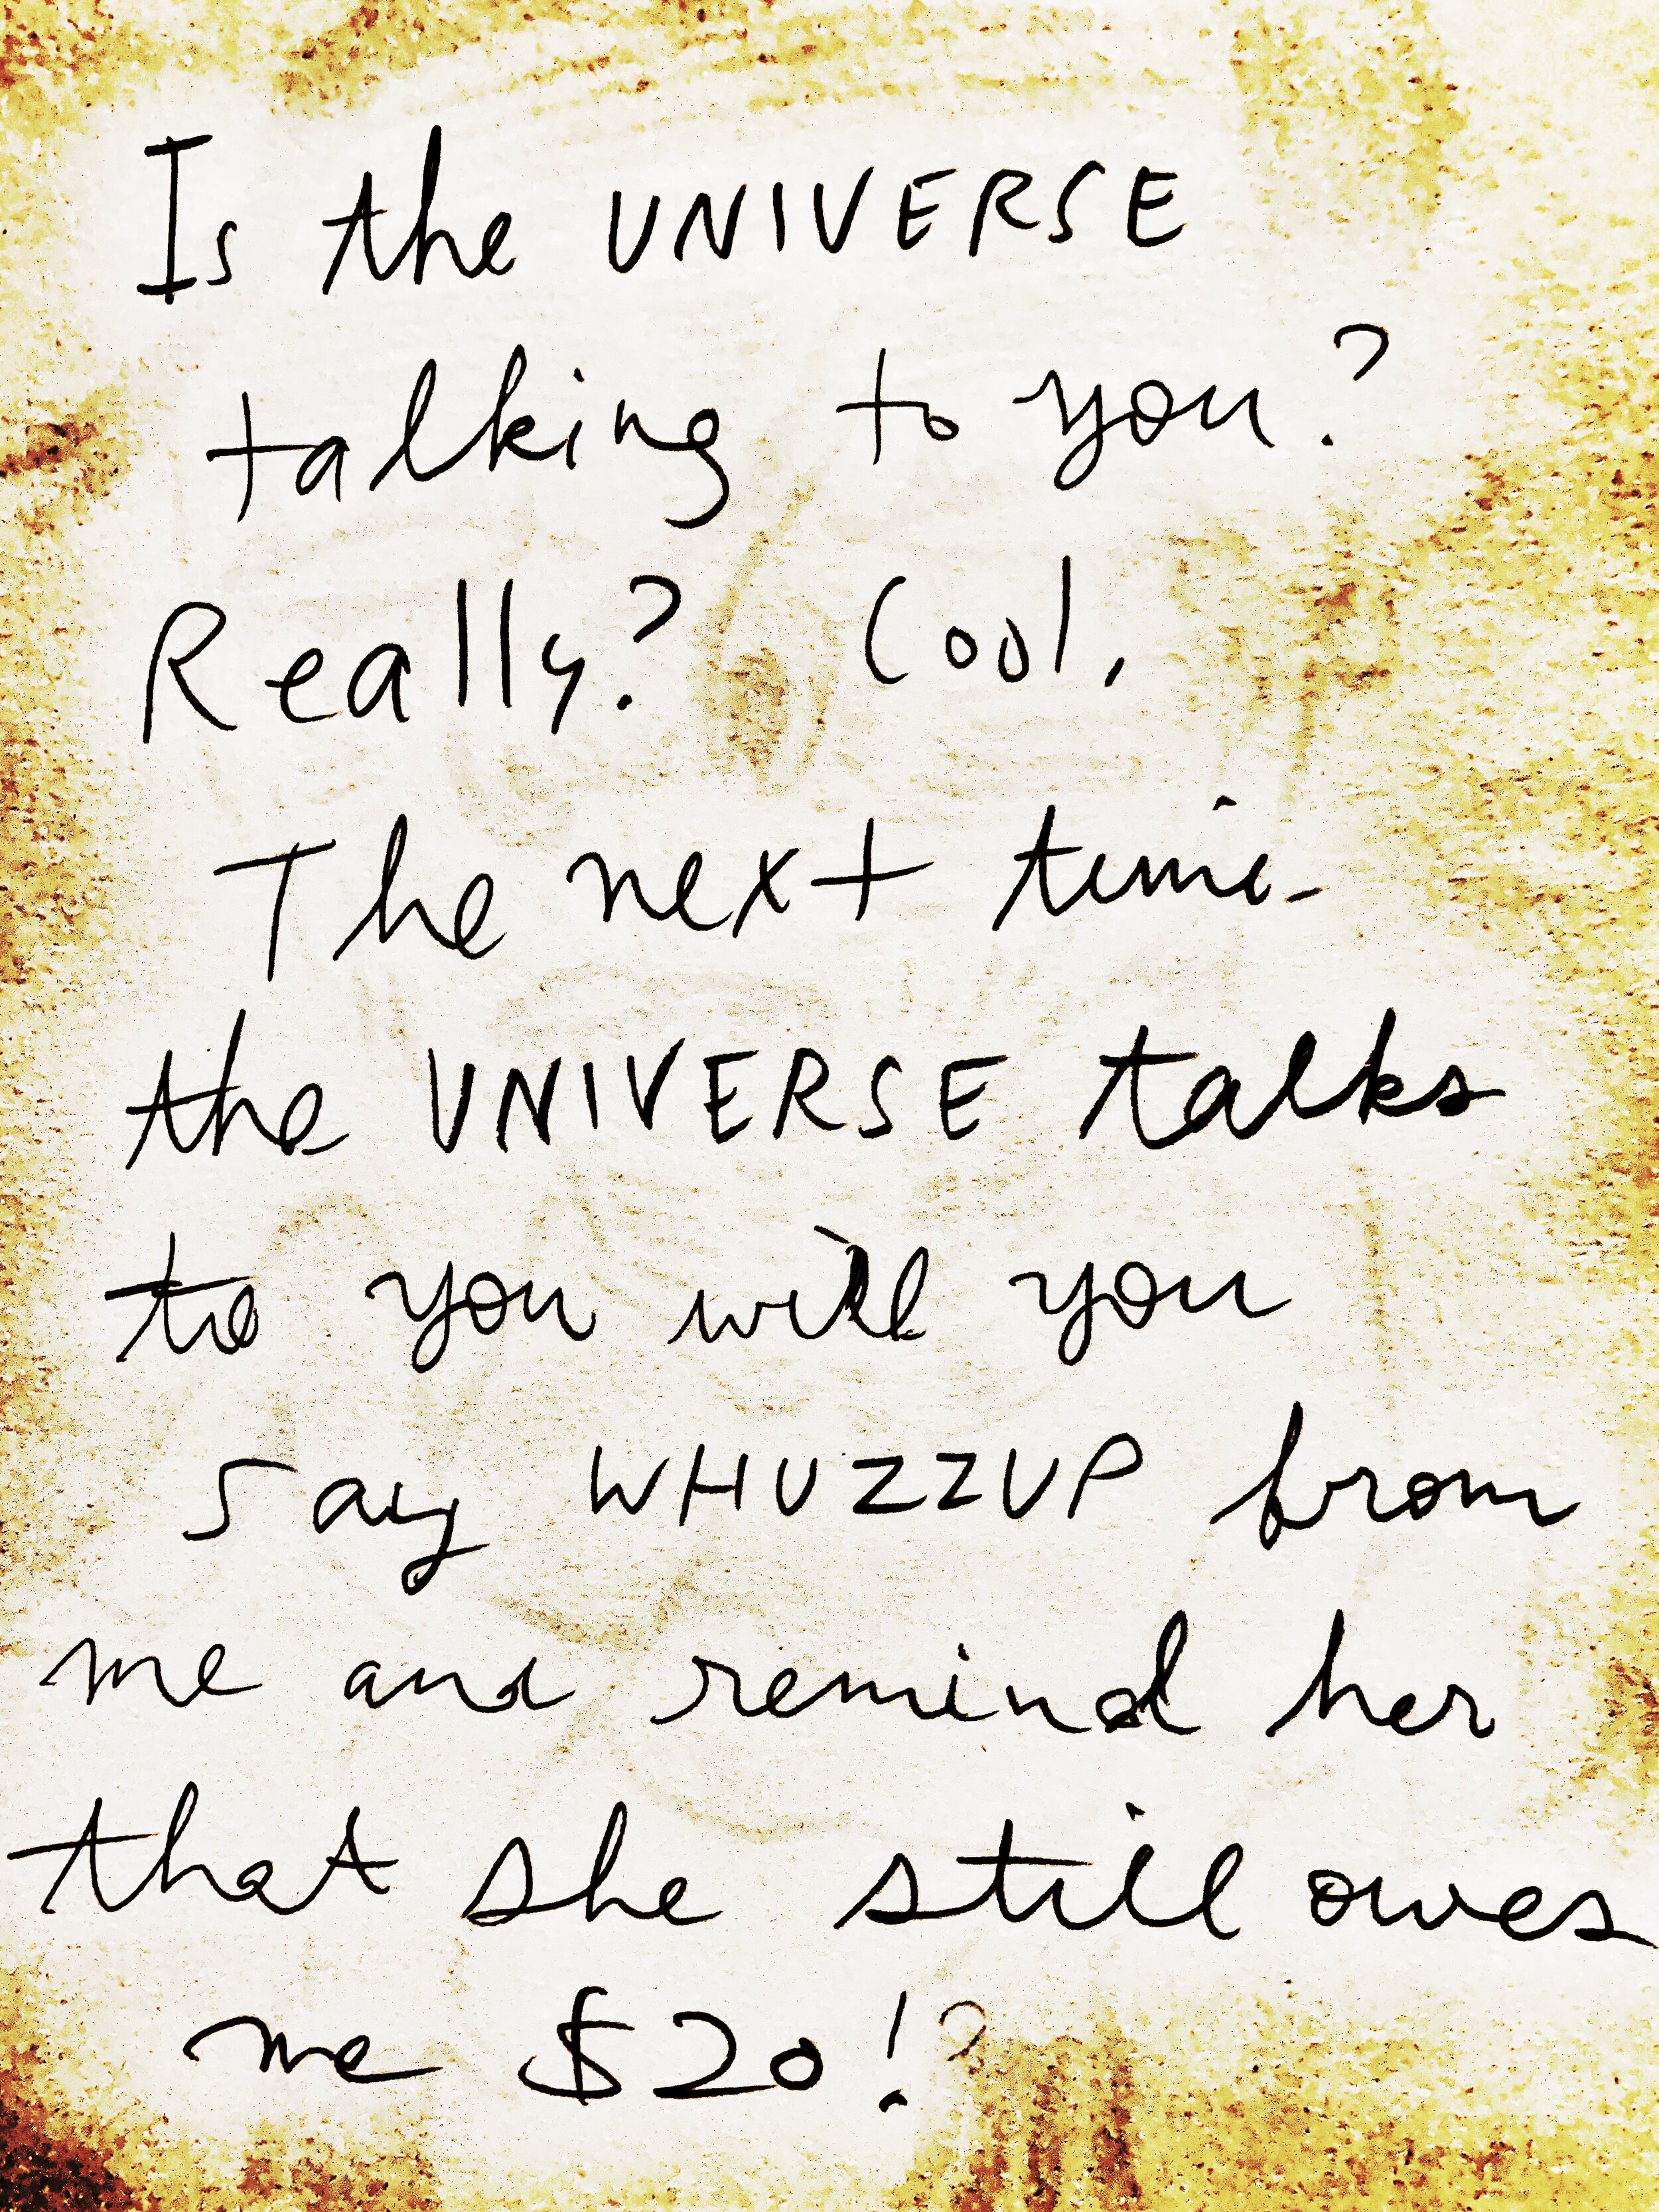 Is the UNIVERSE
talking to you?
Really? Cool.
The next time
the UNIVERSE talks
to you will you
say WHUZZUP from
me and remind her
that she still owes
me $20!?